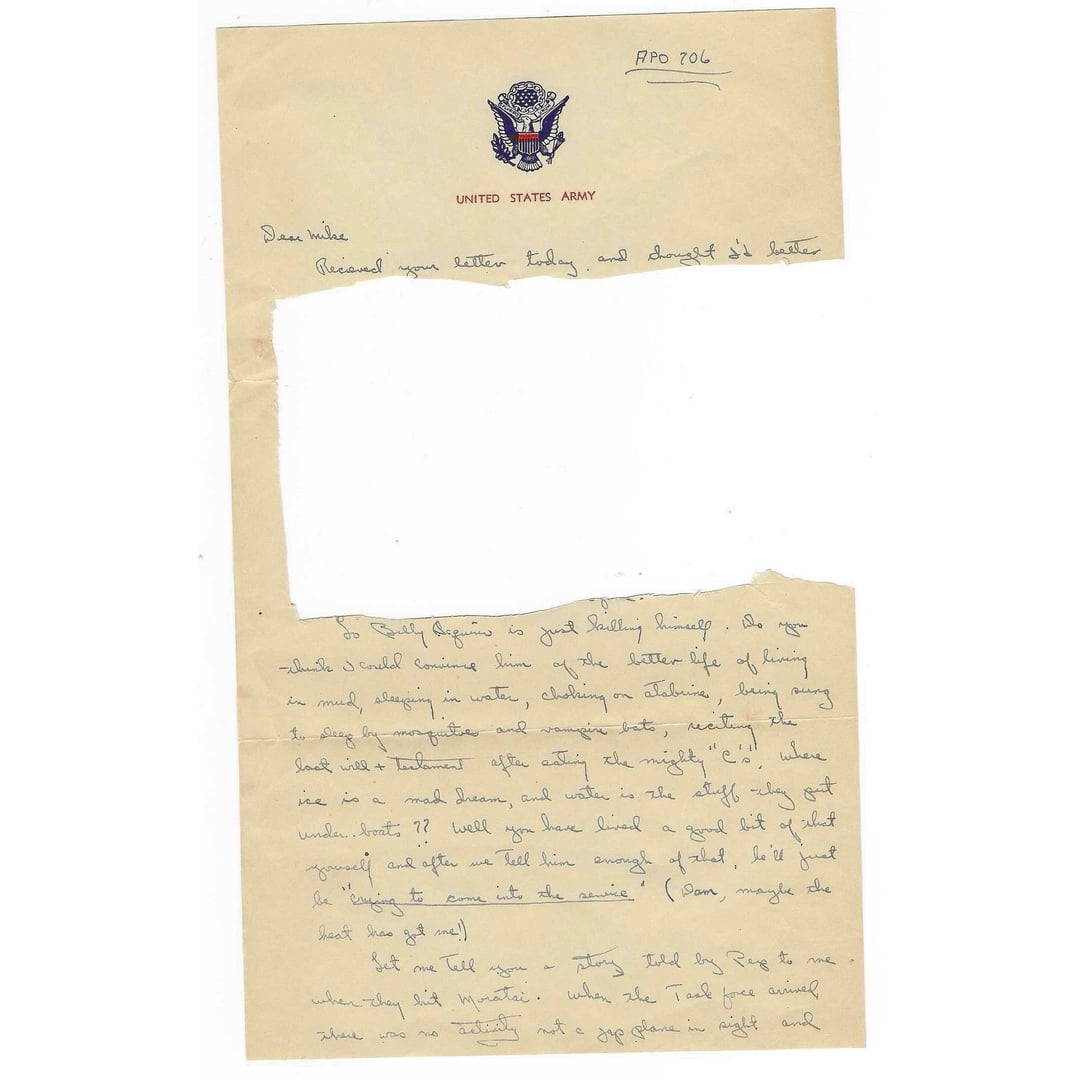 APO 706
UNITED STATES ARMY
Dear Mike
Recieved your letter today and thought I'd better
So Billy is just killing himself. Do you
think I could convince him of the better life of living
in mud, sleeping in water, choking on atabrine, being sung
to sleep by mosquitoe and vampire bats, reciting the
last will + testament after eating the mighty "C's", where
ice is a mad dream, and water is the stuff they put
under boats?? Well you have lived a good bit of that
yourself and after we tell him enough of that, he'll just
be "crying to come into the service" (Dam, maybe the
heat has got me!)
Let me tell you a story told by Pep to me
when they hit Moratai. When the Task force arrived
there was no activity not a jap plane in sight and